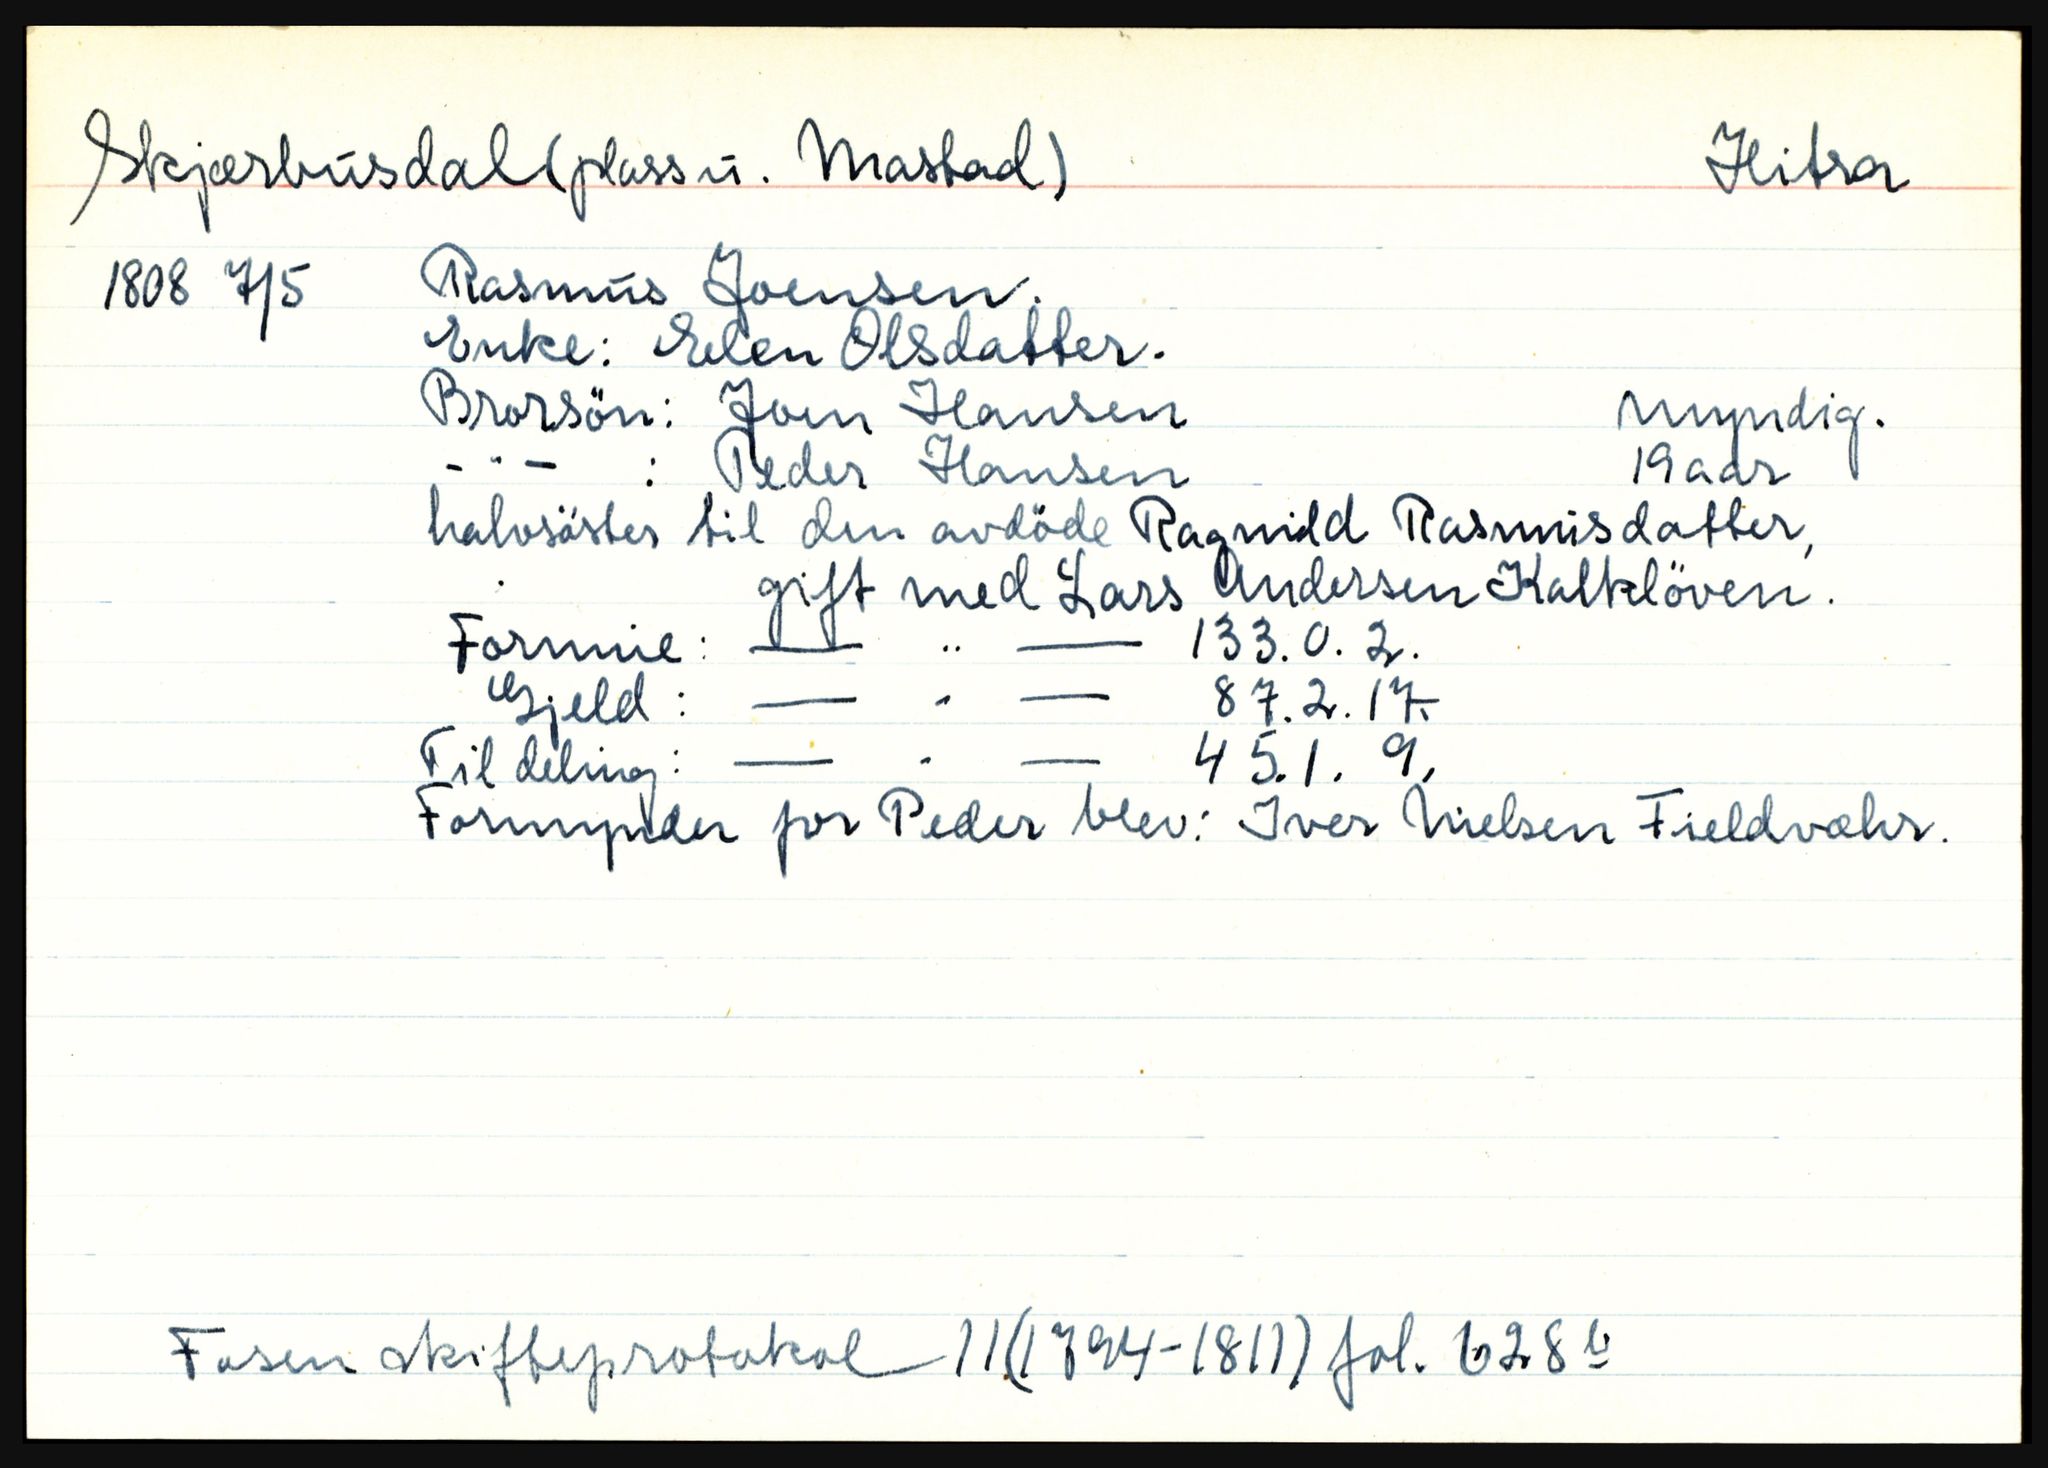 Skjærbusdal (plass u. Mastad) Hitra
1808 7/5 Rasmus Joensen.
Enke: Elen Olsdatter.
Brorsön: Joen Hansen myndig.
- " - : Peder Hansen 19 aar
halvsöster til den avdöde Ragnild Rasmusdatter,
gift med Lars Andersen Kalklöven.
Formue: — " — 133.0.2.
Gjeld: — " — 87.2.17.
Til deling: — " — 45.1.9.
Formynder for Peder blev: Iver Nielsen Fieldvæhr.
Fosen skifteprotokol 11 (1794-1811) fol. 628 b